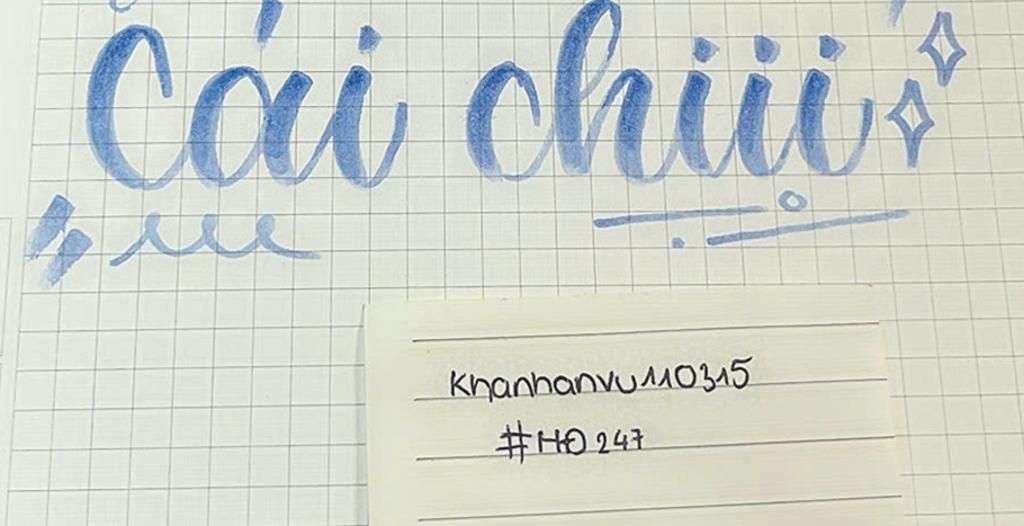 Cái chiii
khanhanvu110315
#HĐ247